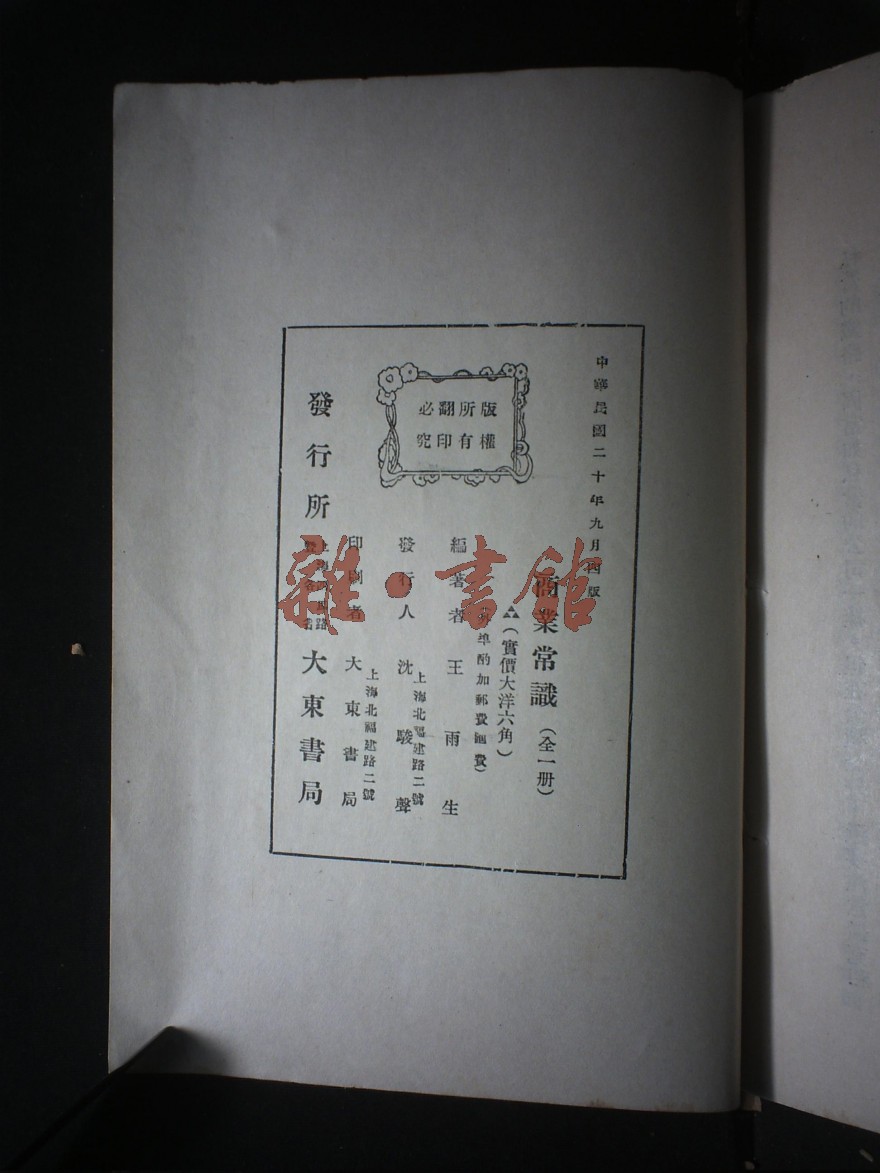 中華民國二十年九月四版
商業常識（全一册）
（實價大洋六角）
埠酌加郵費匯費）
版權
所有
翻印
必究
編著者 王雨生
發行人 沈駿聲
上海北福建路二號
印刷者 大東書局
上海北福建路二號
發行所 大東書局
雜·書館